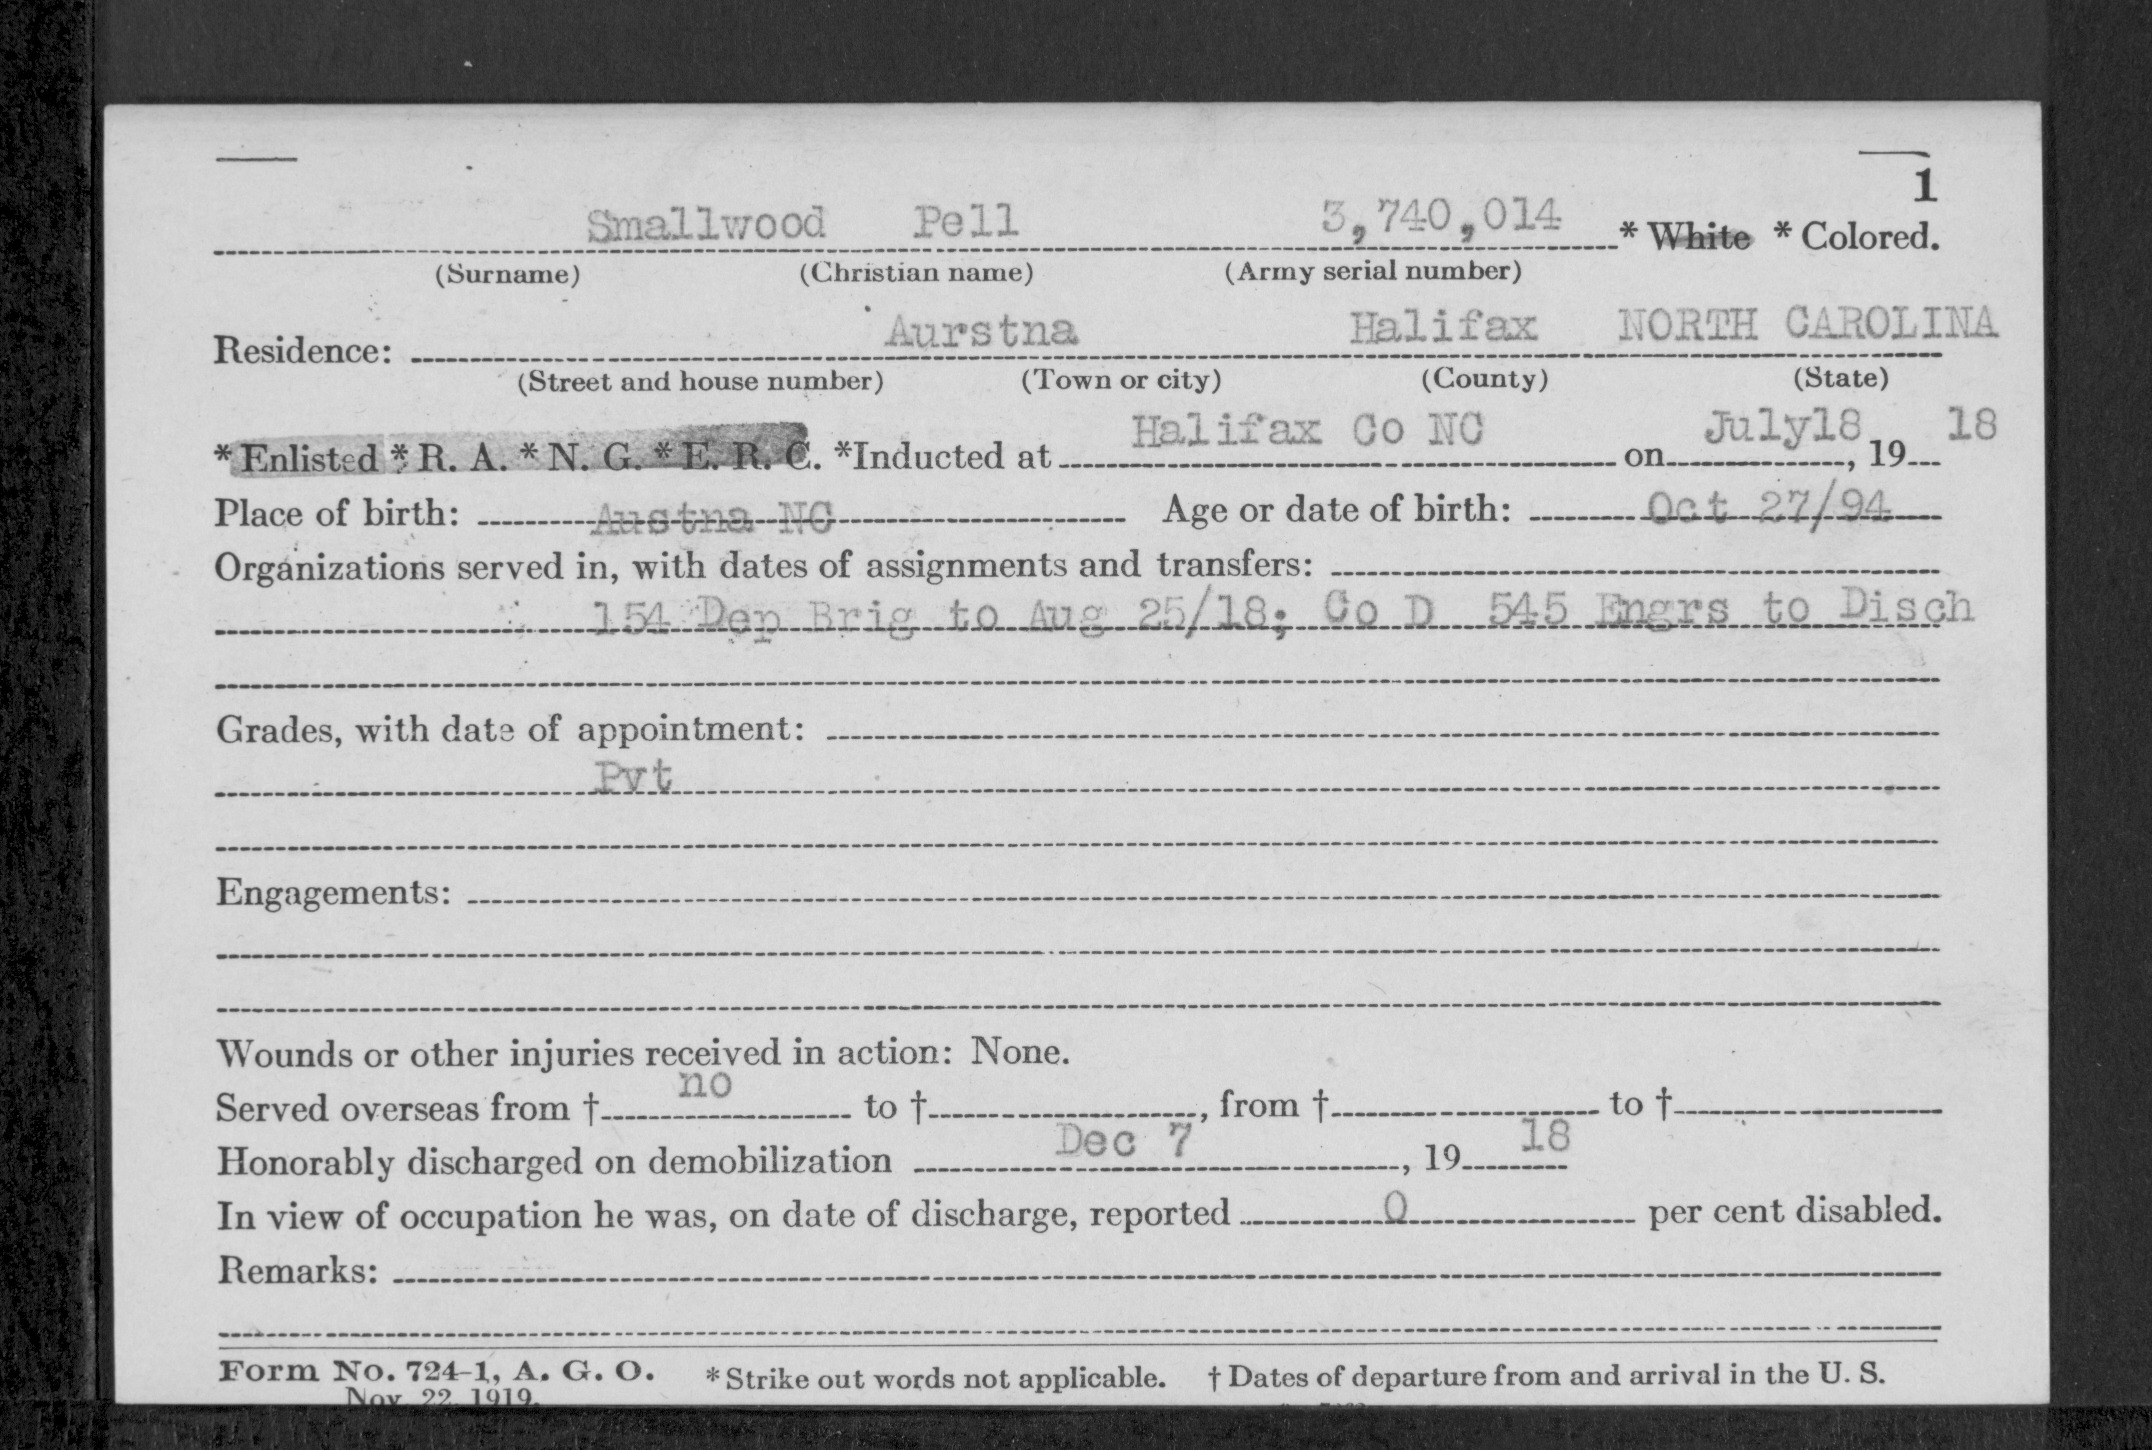 1
Smallwood Pell 3,740,014 * White * Colored.
(Surname) (Christian name) (Army serial number)
Residence: Aurstna Halifax NORTH CAROLINA
(Street and house number) (Town or city) (County) (State)
* Enlisted * R. A. * N. G. * E. R. C. *Inducted at Halifax Co NC on July18, 19 18
Place of birth: Austna NC Age or date of birth: Oct 27/94
Organizations served in, with dates of assignments and transfers:
154 Dep Brig to Aug 25/18; Co D 545 Engrs to Disch
Grades, with date of appointment:
Pvt
Engagements:
Wounds or other injuries received in action: None.
Served overseas from † no to †, from † to †
Honorably discharged on demobilization Dec 7, 19 18
In view of occupation he was, on date of discharge, reported 0 per cent disabled.
Remarks:
Form No. 724-1, A. G. O. * Strike out words not applicable. † Dates of departure from and arrival in the U. S.
Nov. 22, 1919.